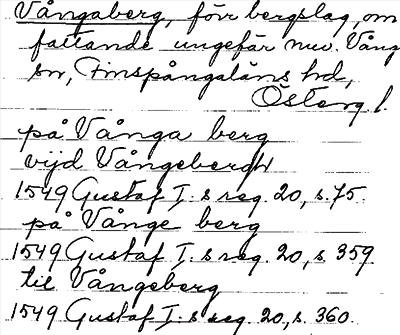 Vångaberg, förr bergslag, om
fattande ungefär nuv. Vång
sn, Finspångaläns hd,
Österg l.
på Vånga berg
vijd Vångebergh
1549 Gustaf I. s reg. 20, s. 75.
på Vånge berg
1549 Gustaf I. s reg. 20, s. 359
til Vångeberg
1549 Gustaf I. s reg. 20, s. 360.